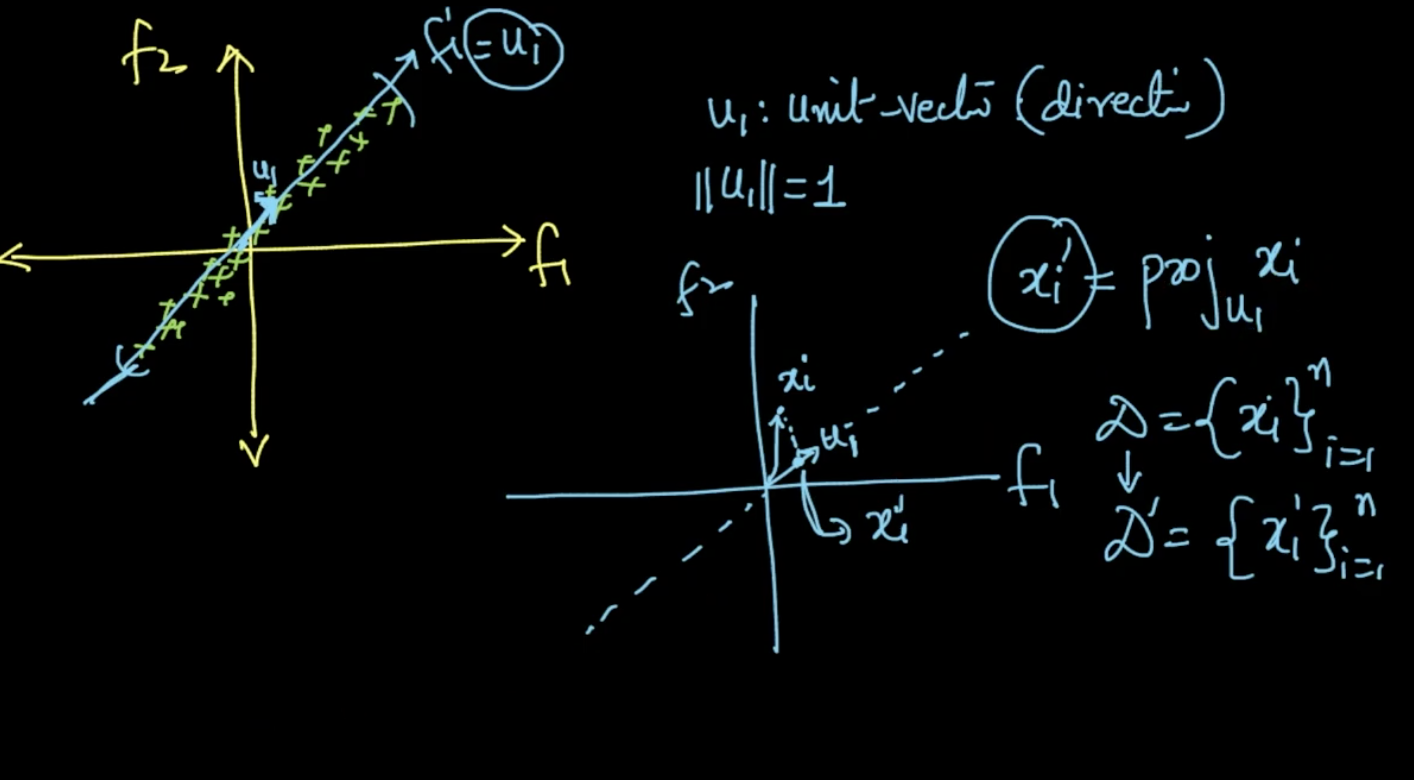 f₂
f₁' = u₁
u₁
f₁
u₁: unit-vect (direct)
||u₁|| = 1
xᵢ' = proj_u₁ xᵢ
f₂
xᵢ
u₁
f₁
xᵢ'
D = {xᵢ}ⁿᵢ₌₁
↓
D' = {xᵢ'}ⁿᵢ₌₁